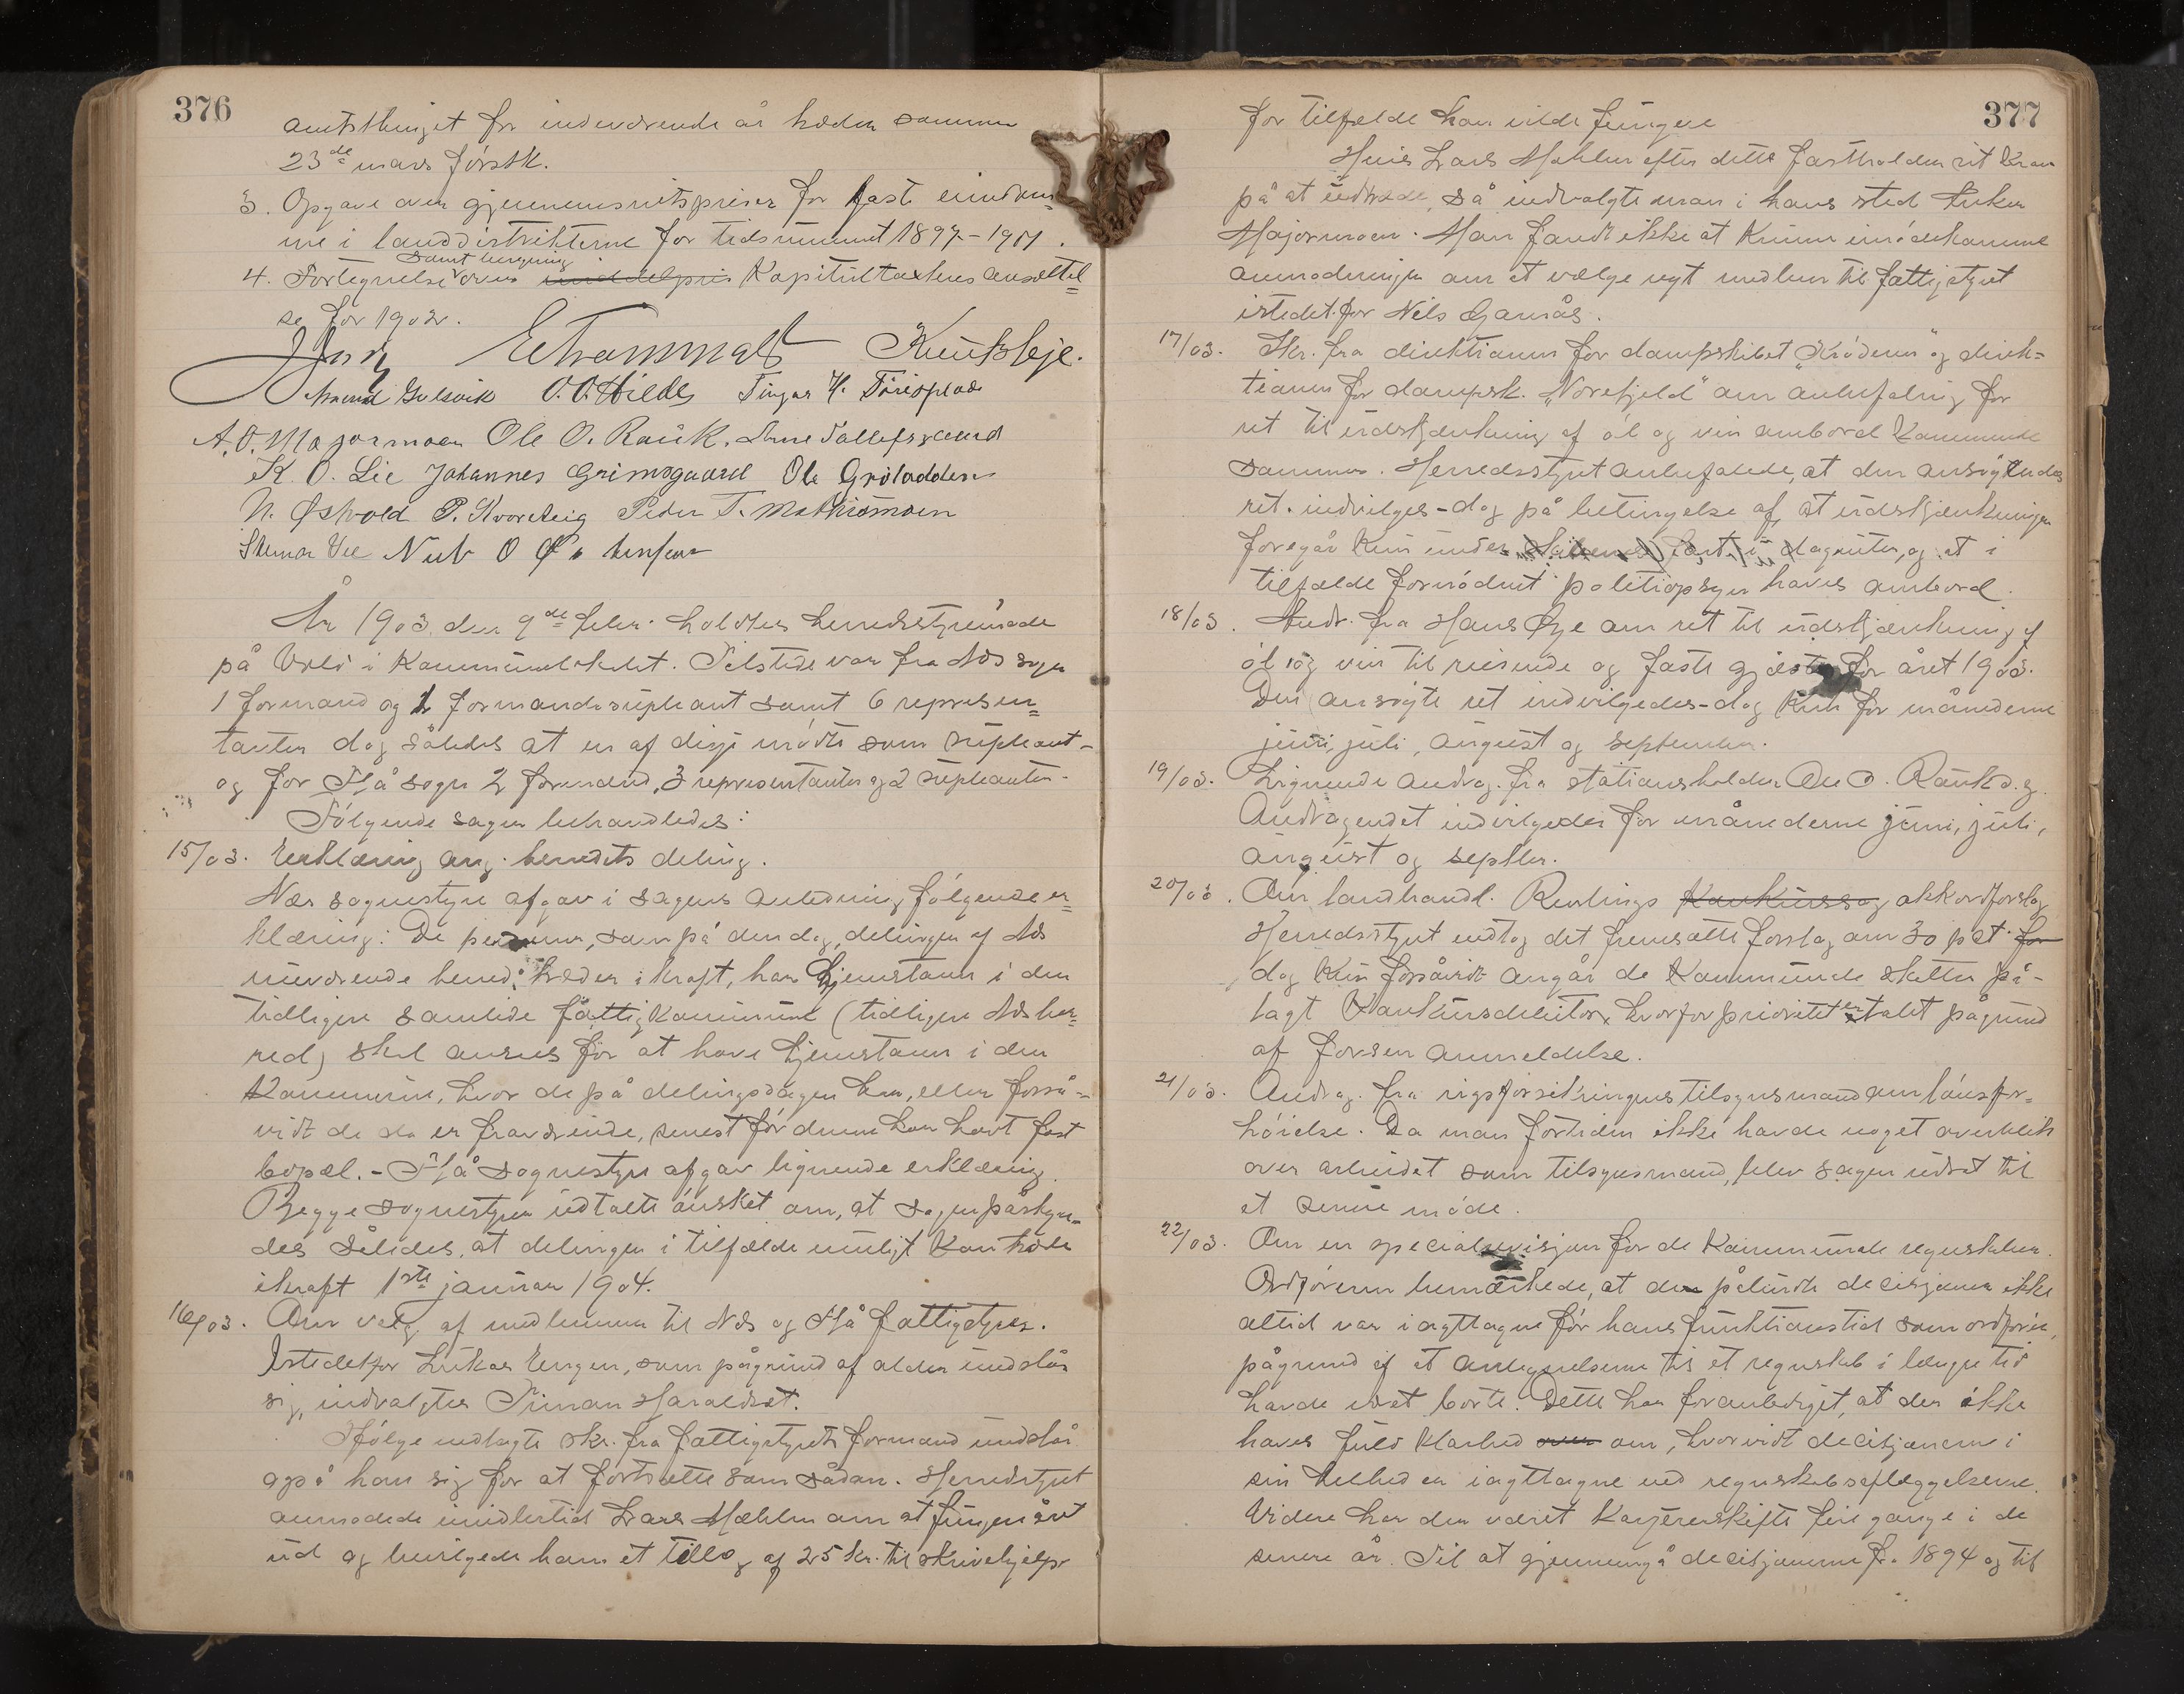 376
amtsthinget for indeværende år træder sammen
23de mars førstk.
3. Opgave over gjennemsnitspriser for faste eiendom=
me i landdistrikterne for tidsrummet 1897-1901.
samt beregning
4. Fortegnelse over middelpris Kapitultakstens ansættel=
se for 1902.
E Trommald Knut Bleje.
Gulsvik O. O. Hilde Tingar H. Fårisplads
A. O. Majormoen Ole O. Rauk. Arne Tollefsrud
K. O. Lie Johannes Grimsgaard Ole Gröladden
N. Østvold P. Kvarsteig Peder T. Mathismoen
Steinar Vee
År 1903 den 9de febr. holdtes herredsstyremøde
på Vold i Kommunelokalet. Tilstede var fra Næs sogn
1 formand og 1 formandssupleant samt 6 represen=
tanter dog således at en af disse mødte som supleant -
og for Flå sogn 2 formænd, 3 representanter og 2 supleanter.
Følgende sager behandledes:
15/03. Erklæring ang. herredets deling.
Næs sognestyre afgav i sagens anledning følgende er=
klæring: De personer, som på den dag, delingen af Næs
nuværende herred træder i kraft, har hjemstavn i den
tidligere samlede fattigkommune (tidligere Næs her=
red) skal ansees for at have hjemstavn i den
Kommune, hvor de på delingsdagen bor, eller forså=
vidt de da er fraværende, senest før denne har havt fast
bopæl. - Flå sognestyre afgav lignende erklæring.
Begge sognestyrer udtalte ønsket om, at sagen påskyn=
des således, at delingen i tilfælde muligt kan træde
ikraft 1ste januar 1904.
16/03. Om valg af medlemmer til Næs og Flå fattigstyrer.
Istedetfor Lukas Engen, som pågrund af alder undslår
sig, indvalgtes Simon Haraldset.
Ifølge indlagte skr. fra fattigstyrets formand undslår
også han sig for at fortsætte som sådan. Herredsstyret
anmodede imidlertid Lars Mæhlen om at fungere året
ud og bevilgede ham et tillæg af 25 kr. til skrivehjelp
377
for tilfælde han vilde fungere
Hvis Lars Mæhlen efter dette fastholder sit krav
på at udtræde, så indvalgte man i hans sted Anken
Majormoen. Man fandt ikke at kunne imødekomme
anmodningen om at vælge nyt medlem til fattigstyret
istedetfor Nils Garnås.
17/03. Skr. fra direktionen for dampskibet "Krøderen" og direk=
tionen for dampsk. "Norefjeld" om anbefaling for
ret til udskjænkning af øl og vin ombord kommende
sommer. Herredsstyret anbefalede, at den ansøgte
ret indvilges - dog på betingelse af, at udskjænkningen
foregår kun under fart dagruter, og at i
tilfælde fornødent politiopsyn haves ombord.
18/03. Andr. fra Hans Øye om ret til udskjænkning af
øl og vin til reisende og faste gjæster for året 1903.
Den ansøgte ret indvilgedes - dog kun for månederne
juni, juli, august og september.
19/03. Lignende andrag. fra stationsholder Ole O. Rauk d.y.
Andragendet indvilgedes for månederne juni, juli,
august og septbr.
20/03. Om landhandl. Konkurssag akkordforslag
Herredsstyret vedtog det fremsatte forslag om 30 pct. for
dog kun forsåvidt angår de kommunale skatter på-
lagt konkursdebitor, hvorfor prioriteten er tabt pågrund
af forsen anmeldelse.
21/03. Andrag. fra rigsforsikringens tilsynsmand om lønsfor=
høielse. Da man fortiden ikke havde noget overblik
over arbeidet som tilsynsmand, blev sagen udsat til
et senere møde.
22/03. Om en specialrevisjon for de kommunale regnskaber.
Ordføreren bemærkede, at de pålagte decisjoner ikke
altid var iagttagne før hans funktionstid som ordfører,
pågrund af at antegnelserne til et regnskab i længre tid
havde været borte. Dette har foranlediget, at der ikke
haves fuld klarhed over om, hvorvidt decisjonerne i
sin helhed er iagttagne ved regnskabsaflæggelserne.
Videre har der været kasjererskifte fire gange i de
senere år. Til at gjennemgå decisjonerne fra 1894 og til